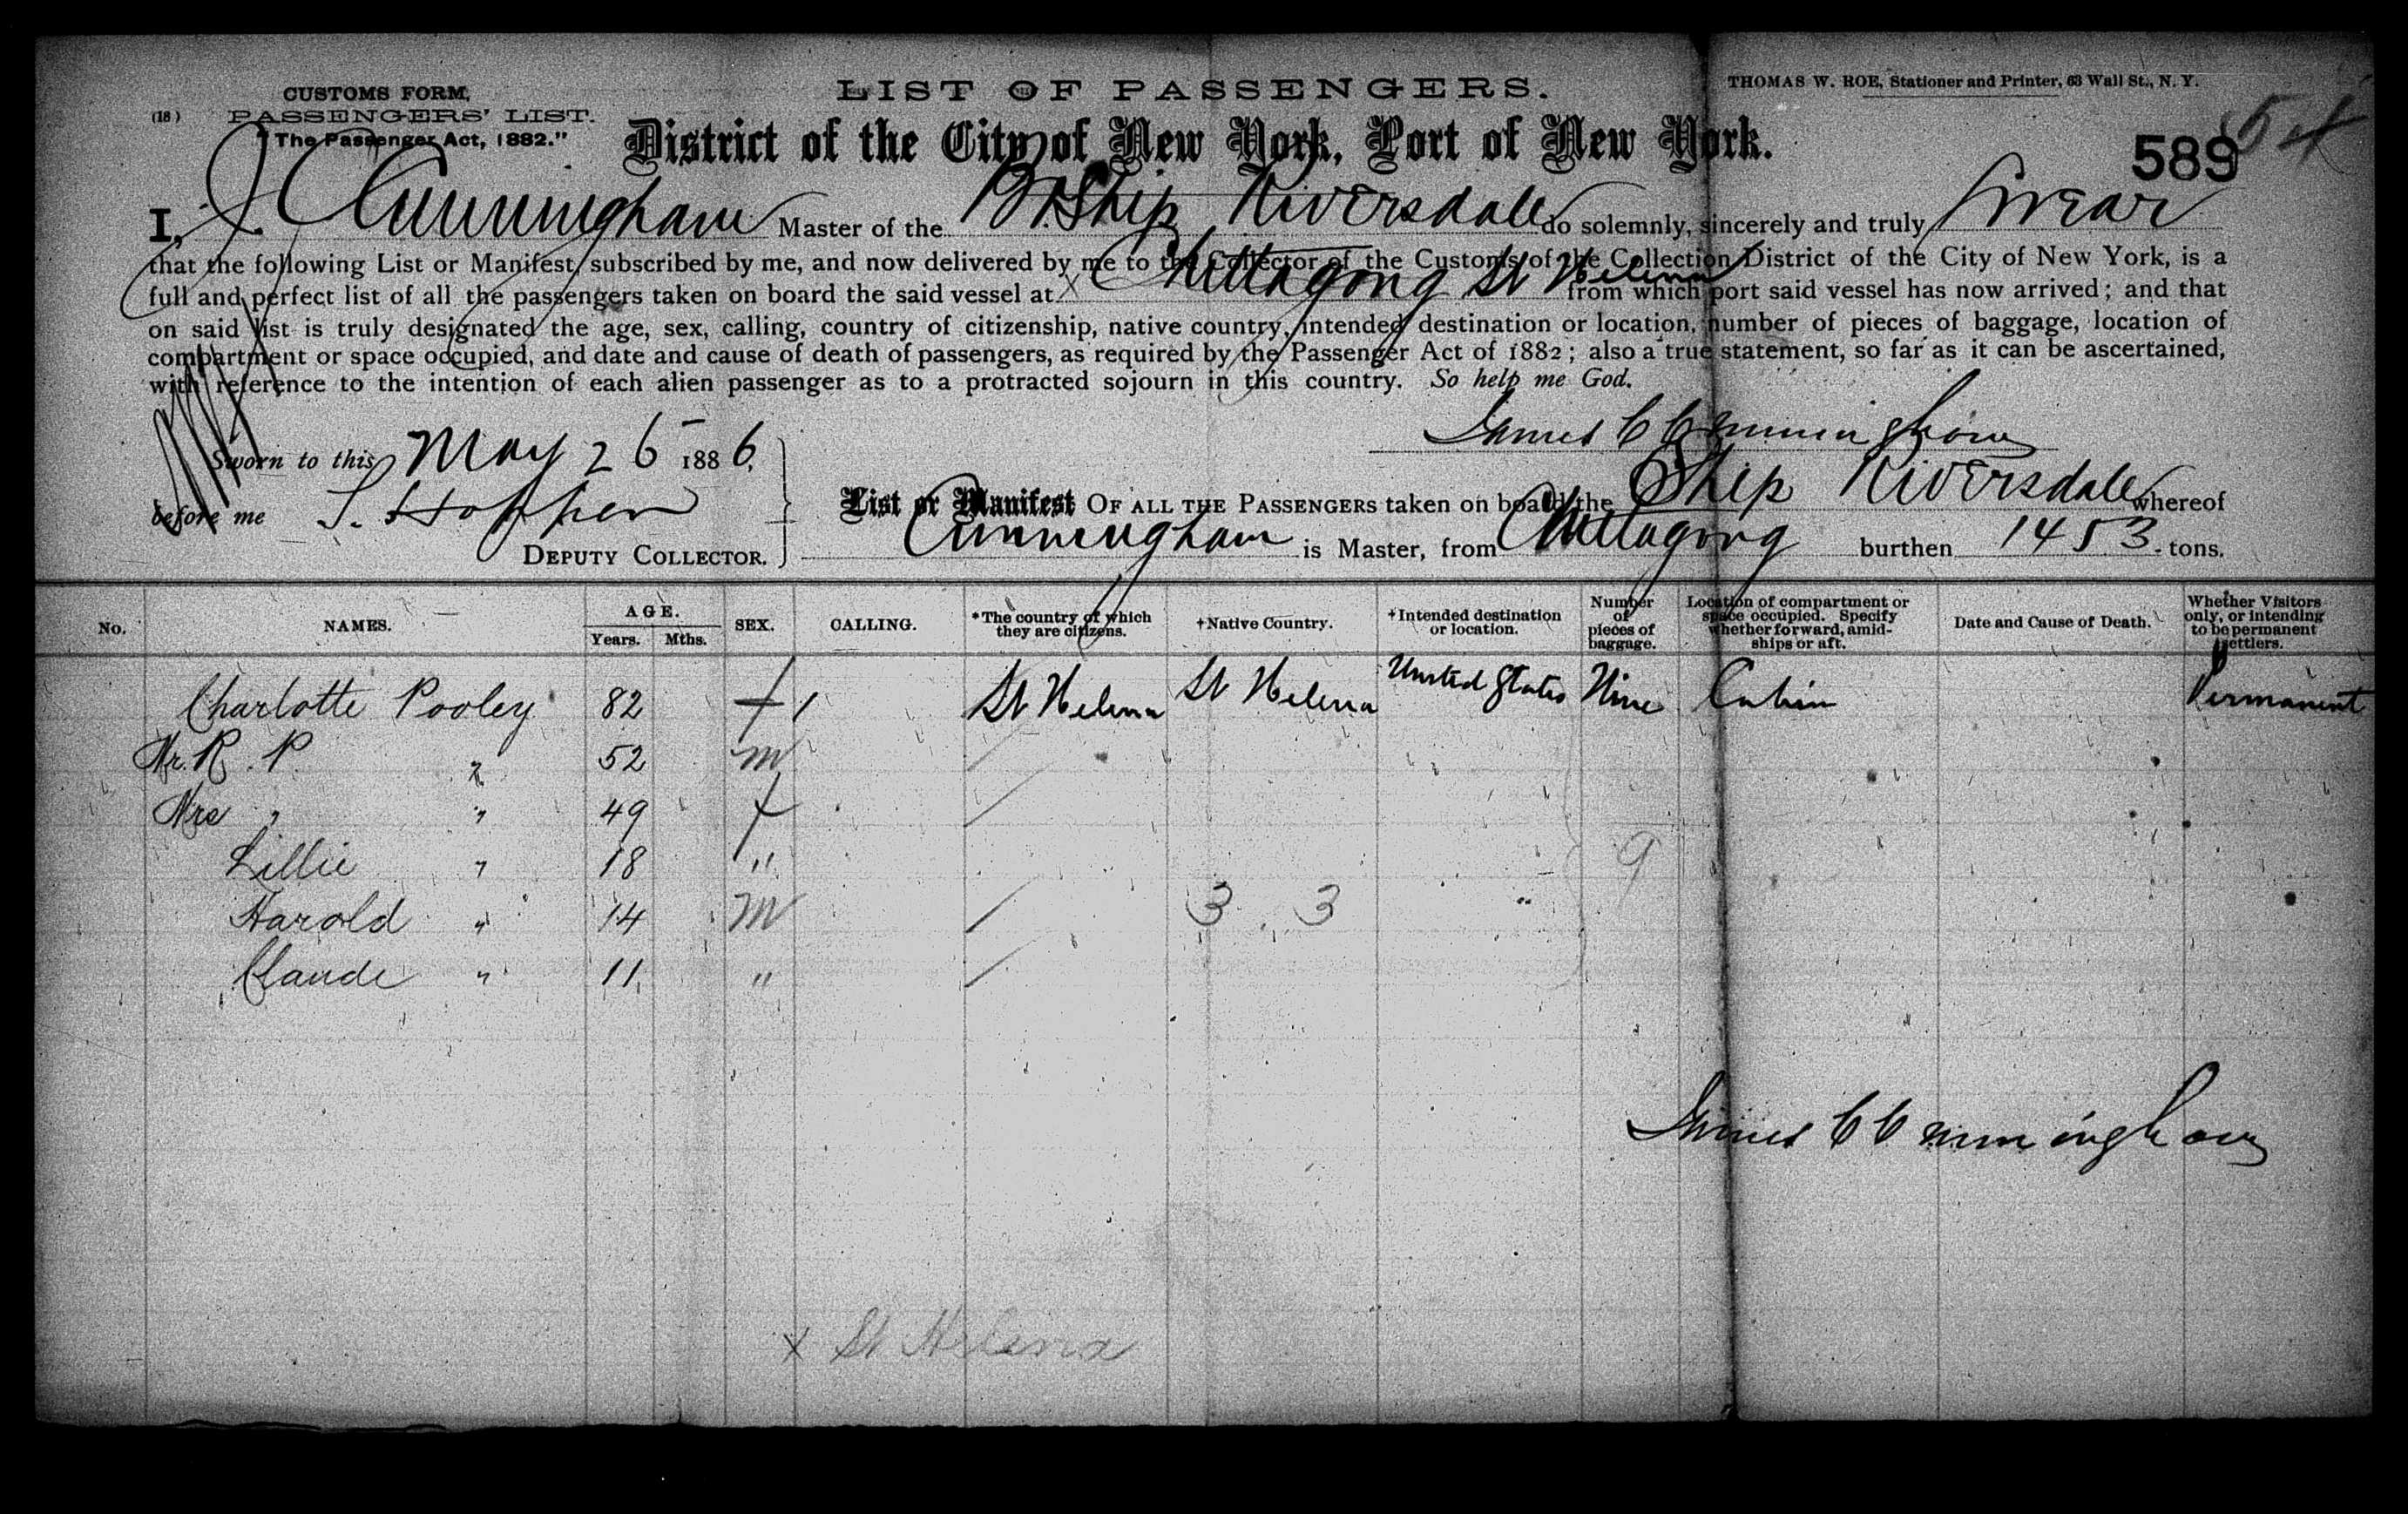 LIST OF PASSENGERS.
THOMAS W. ROE, Stationer and Printer, 63 Wall St., N. Y.
CUSTOMS FORM,
(18) PASSENGERS' LIST.
"The Passenger Act, 1882."
District of the City of New York, Port of New York.
589 54
I, J C Cunningham Master of the Br. Ship Riversdale do solemnly, sincerely and truly Swear
that the following List or Manifest, subscribed by me, and now delivered by me to the Collector of the Customs of the Collection District of the City of New York, is a
full and perfect list of all the passengers taken on board the said vessel at x Chittagong St Helena from which port said vessel has now arrived; and that
on said list is truly designated the age, sex, calling, country of citizenship, native country, intended destination or location, number of pieces of baggage, location of
compartment or space occupied, and date and cause of death of passengers, as required by the Passenger Act of 1882; also a true statement, so far as it can be ascertained,
with reference to the intention of each alien passenger as to a protracted sojourn in this country. So help me God.
James C Cunningham
Sworn to this May 26 1886.
before me S. Hopper
DEPUTY COLLECTOR.
List or Manifest OF ALL THE PASSENGERS taken on board the Ship Riversdale whereof
Cunningham is Master, from Chittagong burthen 1453 tons.
No. NAMES. AGE. Years. Mths. SEX. CALLING. *The country of which they are citizens. †Native Country. †Intended destination or location. Number of pieces of baggage. Location of compartment or space occupied. Specify whether forward, amidships or aft. Date and Cause of Death. Whether Visitors only, or intending to be permanent settlers.
Charlotte Pooley 82 f / St Helena St Helena United States Nine Cabin Permanent
Mr. R. P. " 52 m /
Mrs " " 49 f /
Lillie " 18 " 9
Harold " 14 M / 3 . 3 "
Claude " 11 " /
James C Cunningham
x St Helena